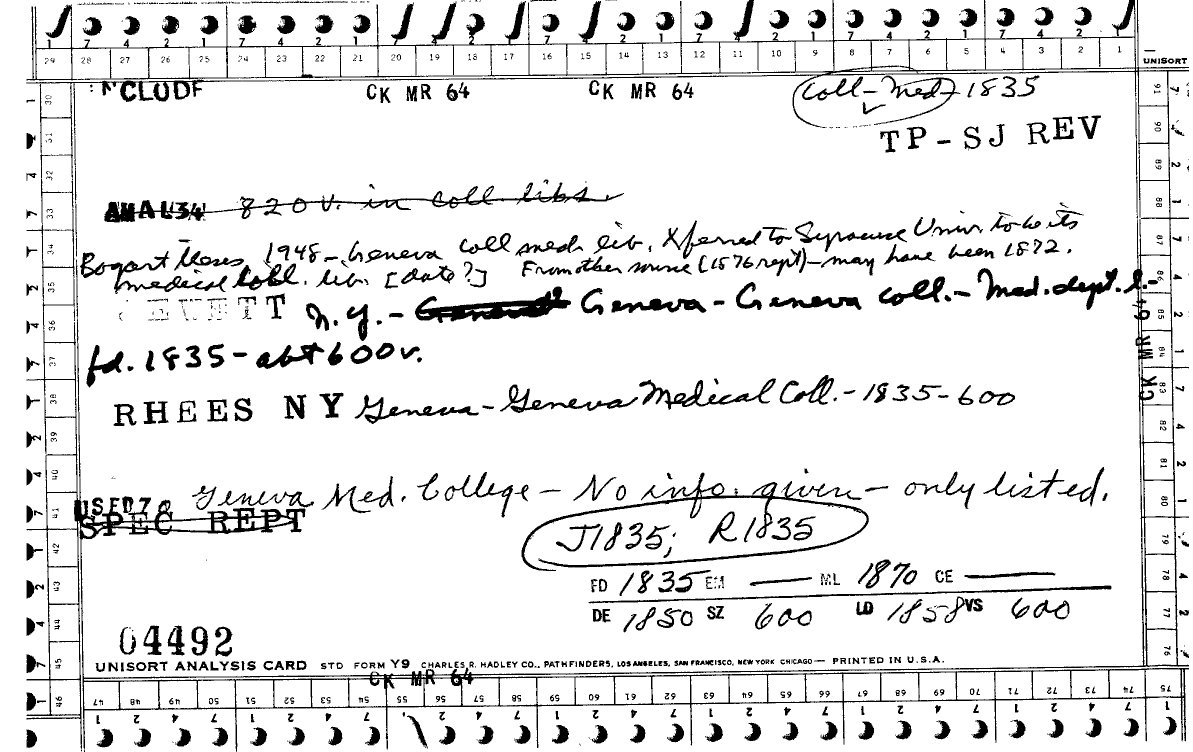 1 7 4 2 1 7 4 2 1 7 4 2 1 7 4 2 1 7 4 2 1 7 4 2 1
29 28 27 26 25 24 23 22 21 20 19 18 17 16 15 14 13 12 11 10 9 8 7 6 5 4 3 2 1 UNISORT
NCLUDE CK MR 64 CK MR 64 Coll-Med-1835
TP-SJ REV
AMAL'34' 820 v. in coll. libs.
Bogart thesis, 1948 - Geneva coll med. lib. Xferred to Syracuse Univ. to be its
medical coll. lib. [date?] From other source (1876 rept) - may have been 1872.
JEWETT N.Y. - Geneva - Geneva coll. - Med. dept. l. -
fd. 1835 - abt 600 v.
RHEES NY Geneva - Geneva Medical Coll. - 1835 - 600
USED 70 Geneva Med. College - No info. given - only listed.
SPEC REPT
J1835; R1835
FD 1835 EM — ML 1870 CE —
DE 1850 SZ 600 LD 1858 VS 600
04492
UNISORT ANALYSIS CARD STD FORM Y9 CHARLES R. HADLEY CO., PATHFINDERS, LOS ANGELES, SAN FRANCISCO, NEW YORK CHICAGO — PRINTED IN U.S.A.
CK MR 64
CK MR 64
30 31 32 33 34 35 36 37 38 39 40 41 42 43 44 45 46
47 48 49 50 51 52 53 54 55 56 57 58 59 60 61 62 63 64 65 66 67 68 69 70 71 72 73 74 75
91 90 89 88 87 86 85 84 83 82 81 80 79 78 77 76